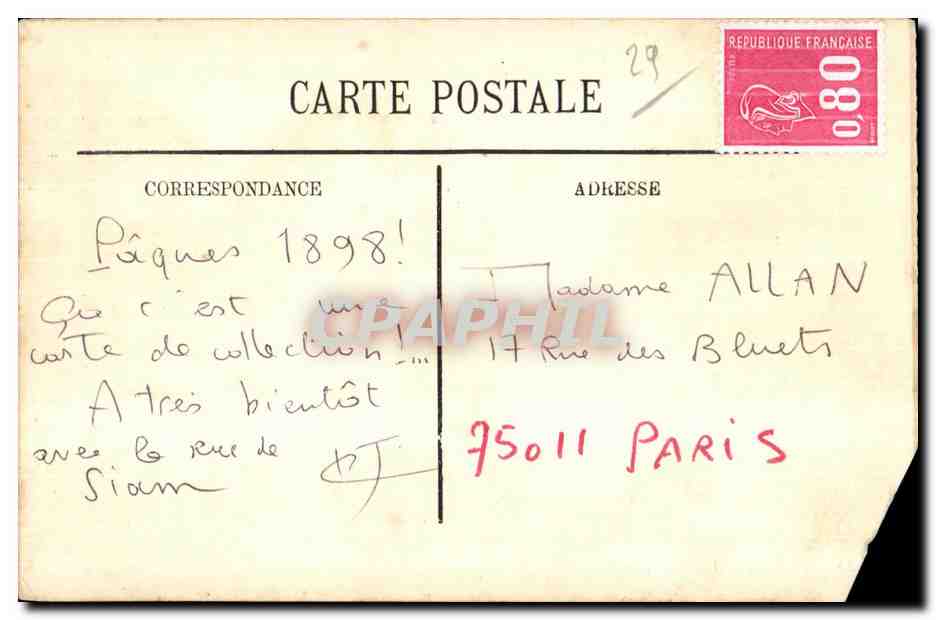 29
REPUBLIQUE FRANÇAISE
POSTES
0,80
CARTE POSTALE
CORRESPONDANCE
ADRESSE
Pâques 1898!
Ça c'est une
carte de collection!...
A très bientôt
avec la rue de
Siam
Madame ALLAN
17 Rue des Bluets
75011 PARIS
CPAPHIL